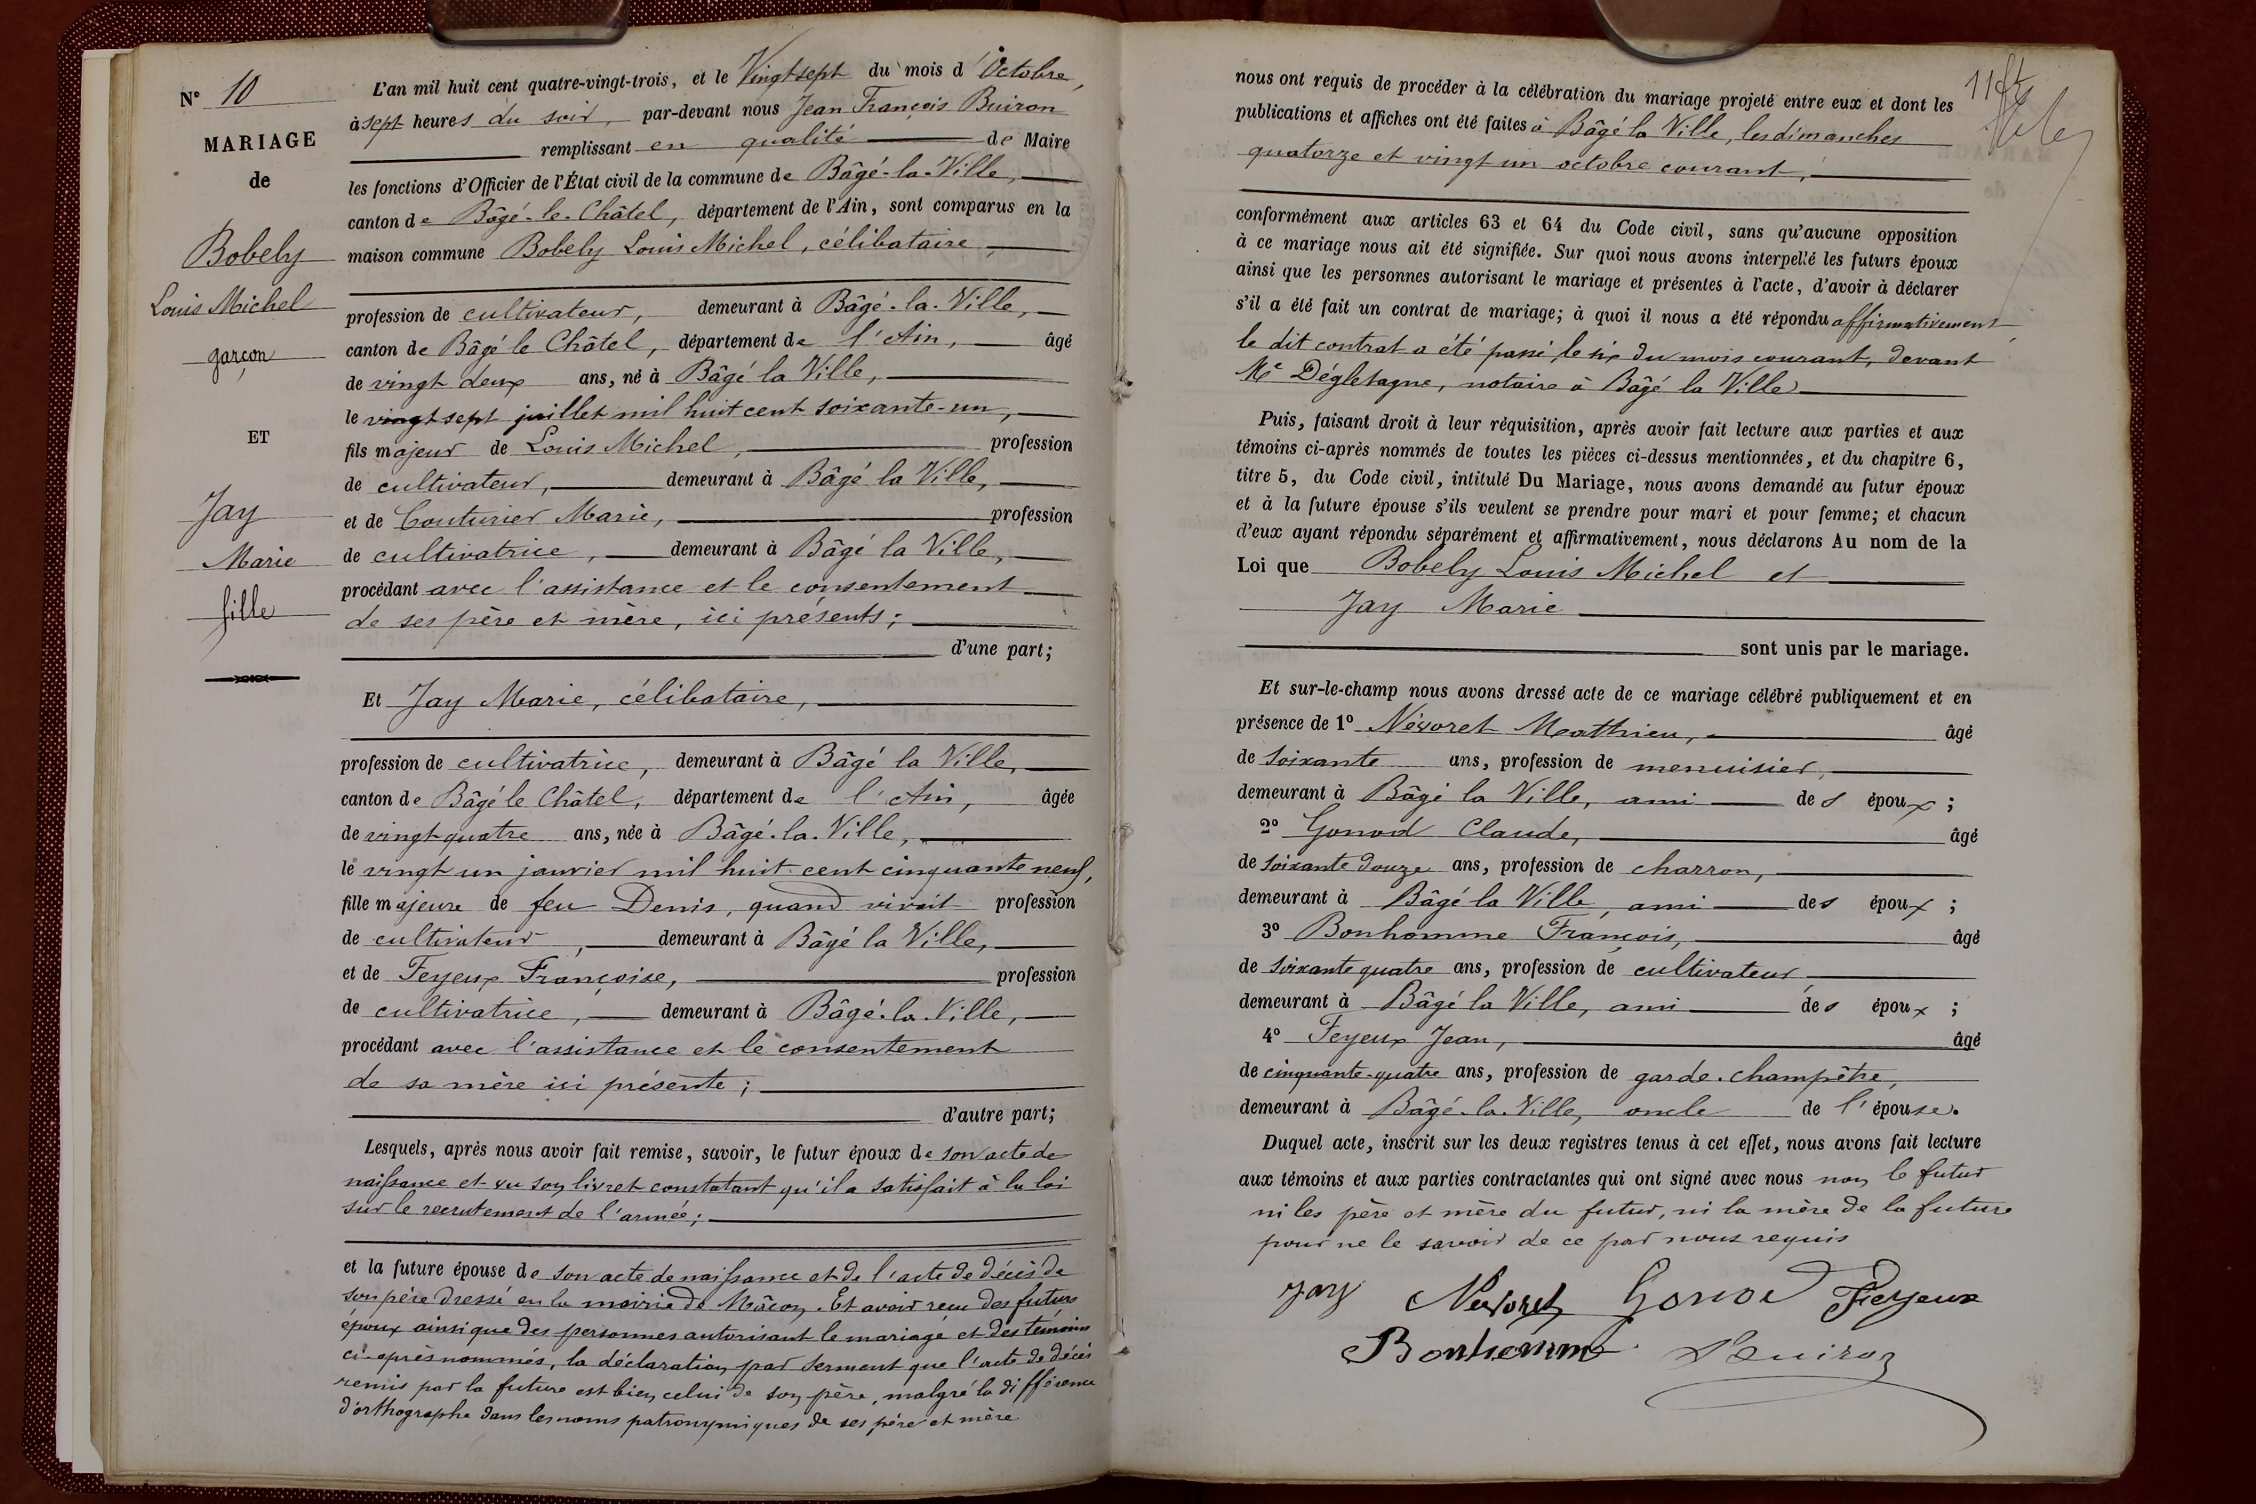 N° 10
MARIAGE
de
Bobely
Louis Michel
garçon
ET
Jay
Marie
fille
L'an mil huit cent quatre-vingt-trois, et le Vingt sept du mois d'Octobre,
à sept heures du soir, par-devant nous Jean François Buiron
remplissant en qualité de Maire
les fonctions d'Officier de l'État civil de la commune de Bâgé-la-Ville,
canton de Bâgé-le-Châtel, département de l'Ain, sont comparus en la
maison commune Bobely Louis Michel, célibataire,
profession de cultivateur, demeurant à Bâgé-la-Ville,
canton de Bâgé le Châtel, département de l'Ain, âgé
de vingt deux ans, né à Bâgé la Ville,
le vingt sept juillet mil huit cent soixante-un,
fils majeur de Louis Michel, profession
de cultivateur, demeurant à Bâgé la Ville,
et de Couturier Marie, profession
de cultivatrice, demeurant à Bâgé la Ville,
procédant avec l'assistance et le consentement
de ses père et mère, ici présents;
d'une part;
Et Jay Marie, célibataire,
profession de cultivatrice, demeurant à Bâgé la Ville,
canton de Bâgé le Châtel, département de l'Ain, âgée
de vingt quatre ans, née à Bâgé-la-Ville,
le vingt un janvier mil huit cent cinquante neuf,
fille majeure de feu Denis, quand vivait profession
de cultivateur, demeurant à Bâgé la Ville,
et de Feyeux Françoise, profession
de cultivatrice, demeurant à Bâgé-la-Ville,
procédant avec l'assistance et le consentement
de sa mère ici présente;
d'autre part;
Lesquels, après nous avoir fait remise, savoir, le futur époux de son acte de
naissance et vu son livret constatant qu'il a satisfait à la loi
sur le recrutement de l'armée;
et la future épouse de son acte de naissance et de l'acte de décès de
son père dressé en la mairie de Mâcon. Et avoir reçu des futurs
époux ainsi que des personnes autorisant le mariage et des témoins
ci-après nommés, la déclaration par serment que l'acte de décès
remis par la future est bien celui de son père, malgré la différence
d'orthographe dans les noms patronymiques de ses père et mère
11
nous ont requis de procéder à la célébration du mariage projeté entre eux et dont les
publications et affiches ont été faites à Bâgé la Ville, les dimanches
quatorze et vingt un octobre courant,
conformément aux articles 63 et 64 du Code civil, sans qu'aucune opposition
à ce mariage nous ait été signifiée. Sur quoi nous avons interpellé les futurs époux
ainsi que les personnes autorisant le mariage et présentes à l'acte, d'avoir à déclarer
s'il a été fait un contrat de mariage; à quoi il nous a été répondu affirmativement
le dit contrat a été passé le six du mois courant, devant
Me Dégletagne, notaire à Bâgé la Ville
Puis, faisant droit à leur réquisition, après avoir fait lecture aux parties et aux
témoins ci-après nommés de toutes les pièces ci-dessus mentionnées, et du chapitre 6,
titre 5, du Code civil, intitulé Du Mariage, nous avons demandé au futur époux
et à la future épouse s'ils veulent se prendre pour mari et pour femme; et chacun
d'eux ayant répondu séparément et affirmativement, nous déclarons Au nom de la
Loi que Bobely Louis Michel et
Jay Marie
sont unis par le mariage.
Et sur-le-champ nous avons dressé acte de ce mariage célébré publiquement et en
présence de 1° Névoret Matthieu, âgé
de soixante ans, profession de menuisier,
demeurant à Bâgé la Ville, ami des époux;
2° Gonod Claude, âgé
de soixante douze ans, profession de charron,
demeurant à Bâgé la Ville, ami des époux;
3° Bonhomme François, âgé
de soixante quatre ans, profession de cultivateur,
demeurant à Bâgé la Ville, ami des époux;
4° Feyeux Jean, âgé
de cinquante-quatre ans, profession de garde-champêtre,
demeurant à Bâgé-la-Ville, oncle de l'épouse.
Duquel acte, inscrit sur les deux registres tenus à cet effet, nous avons fait lecture
aux témoins et aux parties contractantes qui ont signé avec nous non le futur
ni les père et mère du futur, ni la mère de la future
pour ne le savoir de ce par nous requis
Jay Nevoret Gonod Feyeux
Bonhomme Buiron